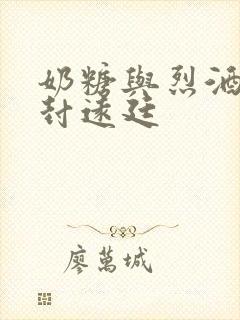 奶糖與烈酒
封遠廷
廖萬城